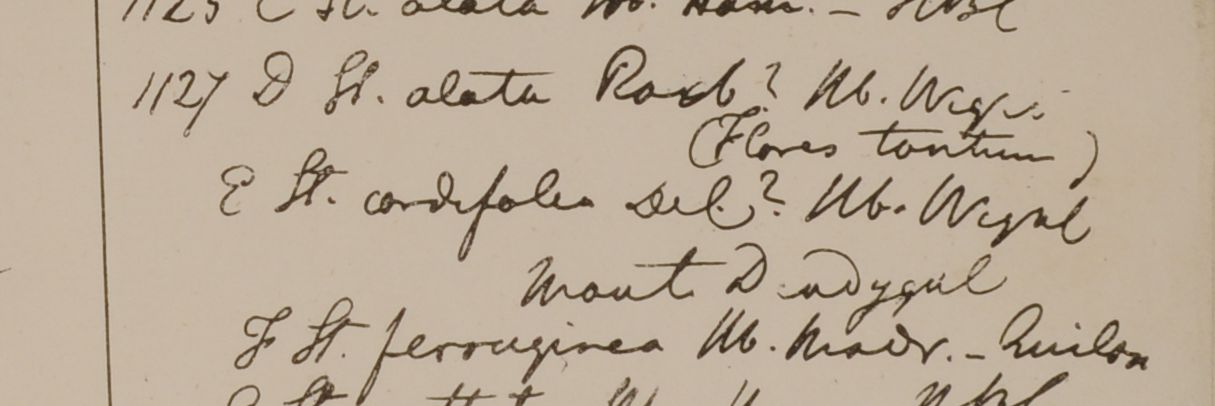 1125 C St. alata Hb. Ham. – HBC
1127 D St. alata Roxb? Hb. Wight
(Flores tantum)
E St. cordifolia Del.? Hb. Wight
Mont Dindygul
F St. ferruginea Hb. Madr. – Quilon